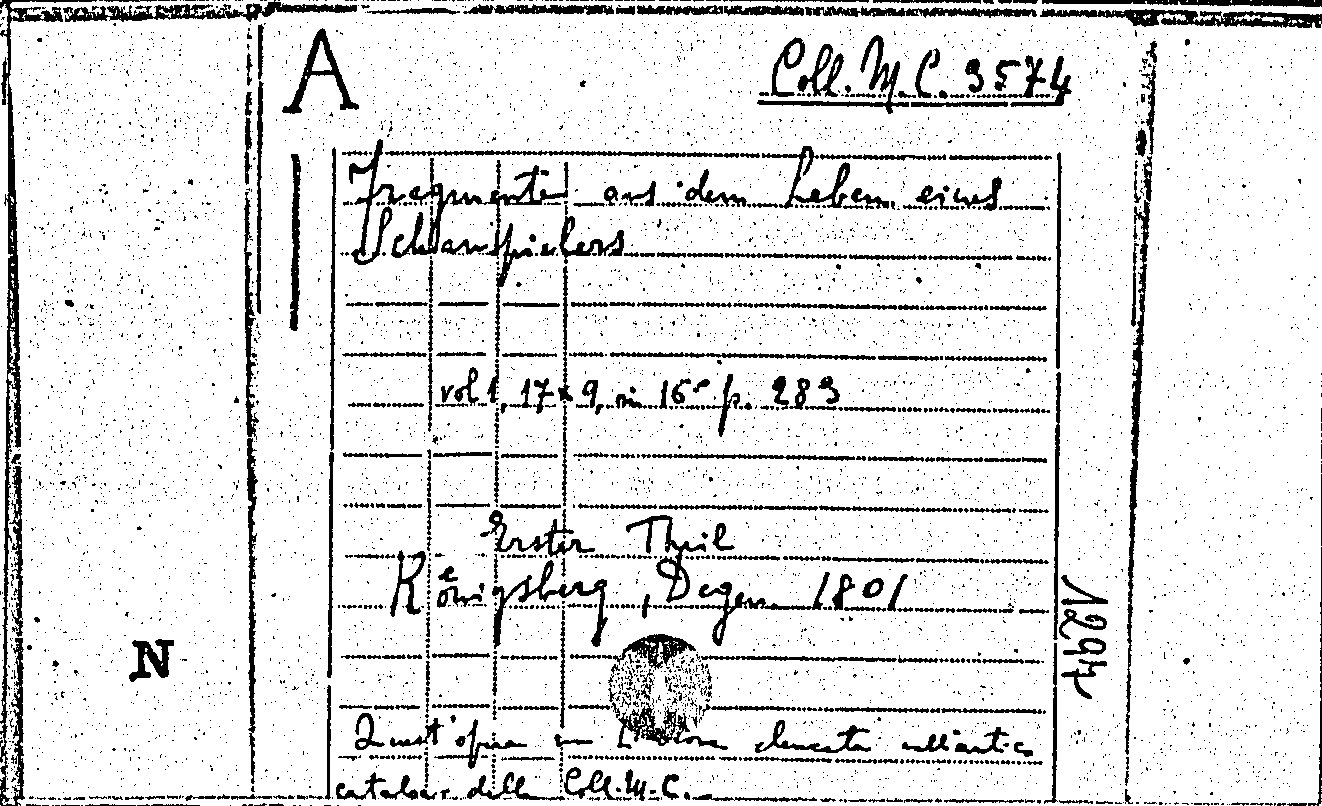 A
Coll. M. C. 3574
Fragmente aus dem Leben eines
Schauspielers
vol 1, 17 x 9, in 16° p. 283
Erster Theil
Königsberg, Degen 1801
N
Quest'opera non elencata nell'antico
catalogo della Coll. M. C.